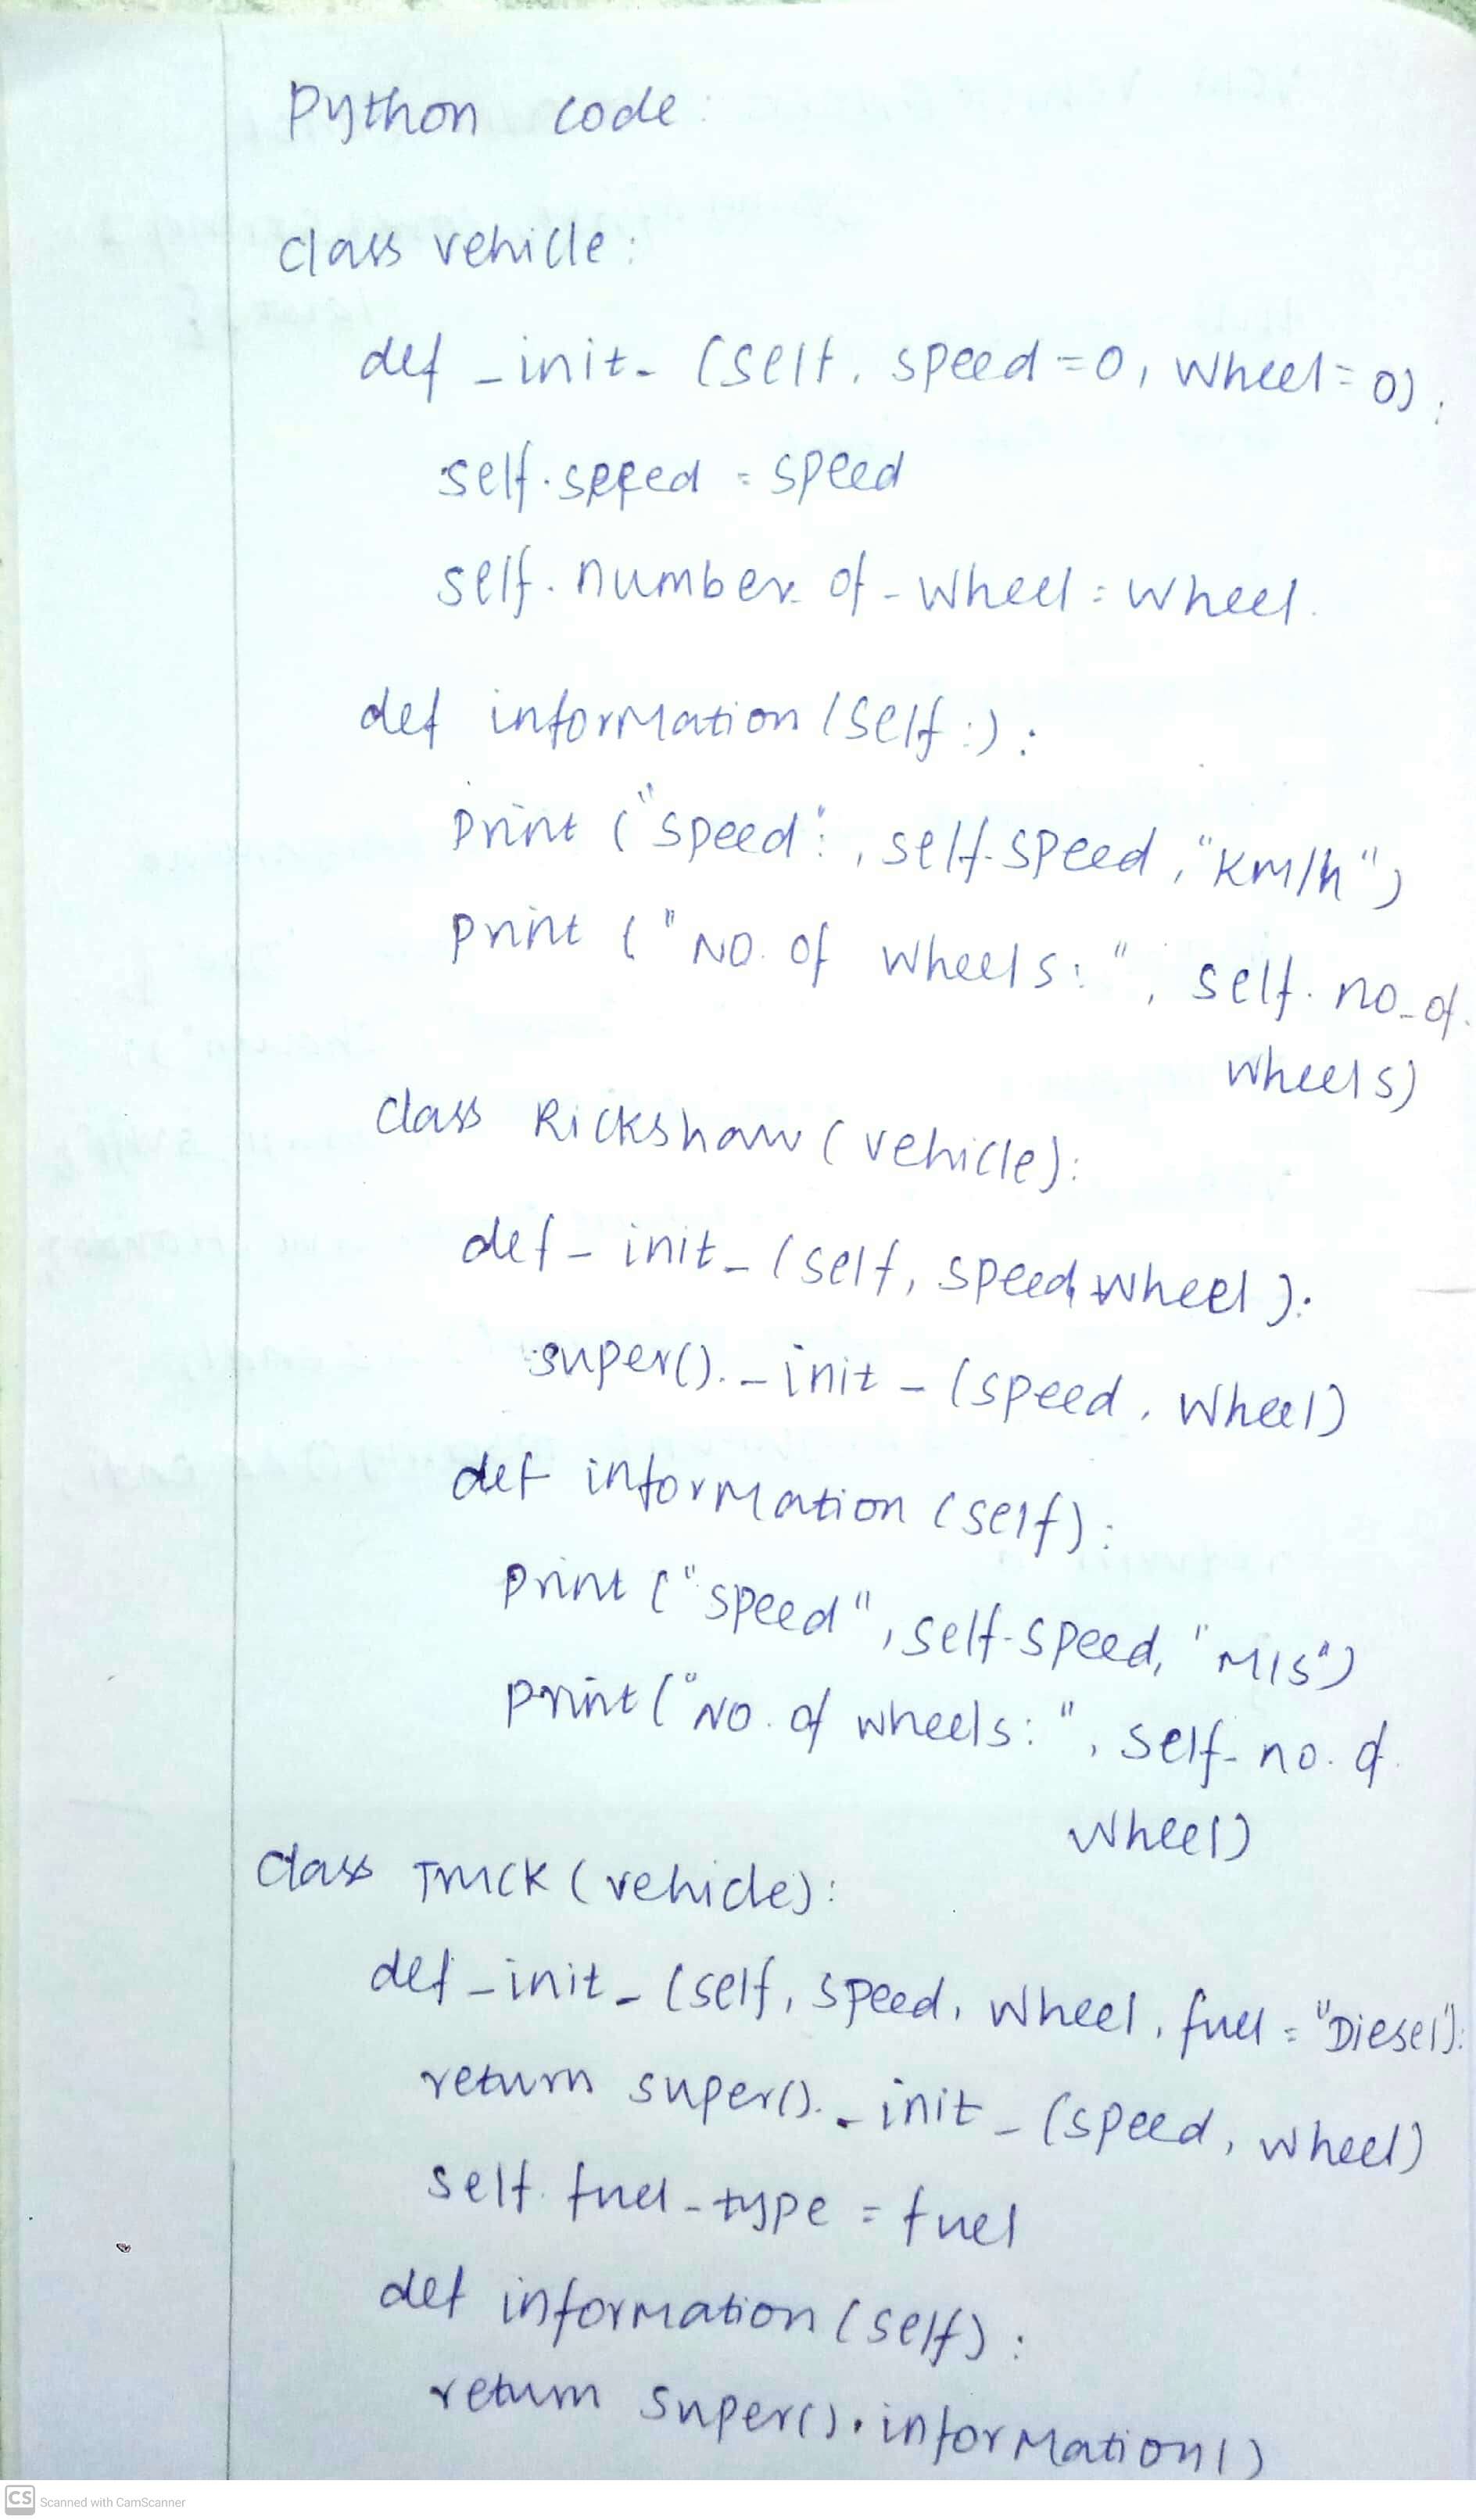 Python code:
class vehicle:
def _init_ (self, speed=0, wheel=0):
self.speed = speed
self.number of_wheel = wheel.
def information (self:):
print ("speed:", self.speed, "Km/h")
print ("NO. of wheels:", self.no_of_
wheels)
class Rickshaw (vehicle):
def _init_ (self, speed, wheel):
super()._init_ (speed, wheel)
def information (self):
print ("speed", self.speed, "M/s")
print ("NO. of wheels:", self-no.of.
wheel)
class Truck (vehicle):
def _init_ (self, speed, wheel, fuel = "Diesel"):
return super()._init_ (speed, wheel)
self.fuel_type = fuel
def information (self):
return super().information()
CS Scanned with CamScanner